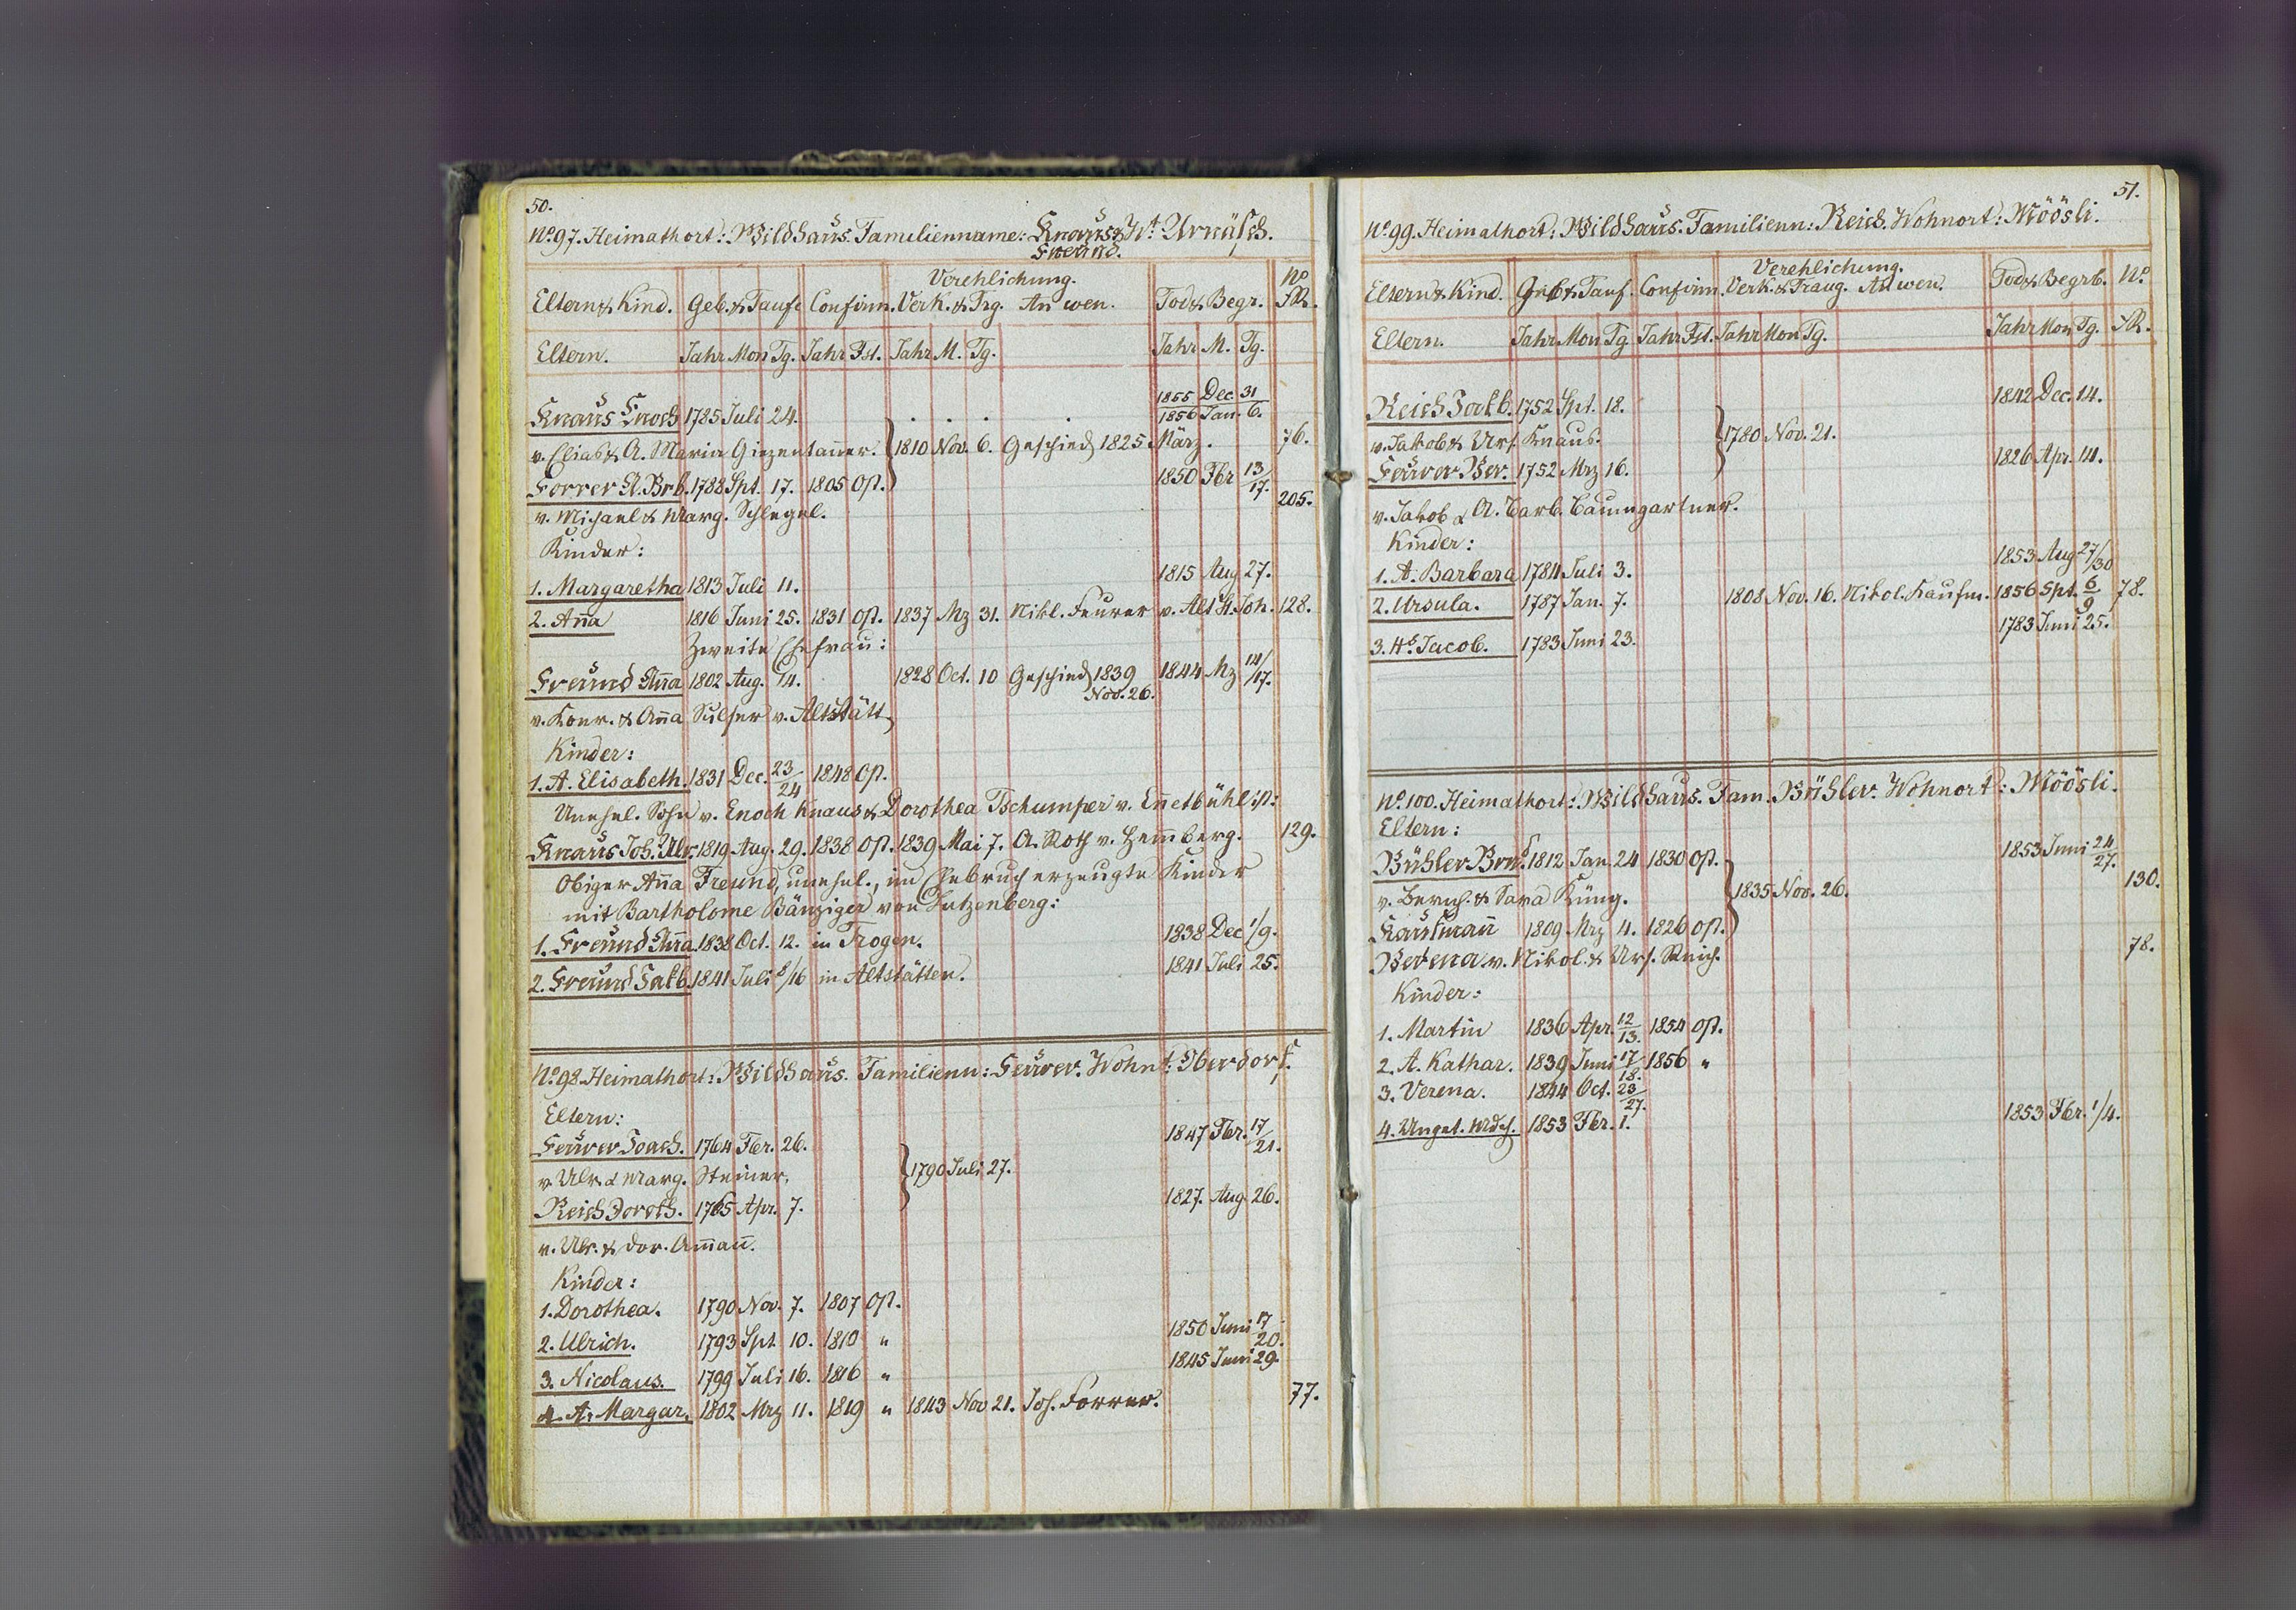 50.
No. 97. Heimathort: Wildhaus. Familienname: Knaus & Wt. Urnäsch.
Freund.
Verehlichung. No
Eltern & Kind. Geb. & Taufe Confirm. Verk. & Trg. An wen. Tod & Begr. FR.
Eltern. Jahr Mon Tg. Jahr Fst. Jahr M. Tg. Jahr M. Tg.
1855 Dec. 31
Knaus Enoch 1785 Juli 24. 1856 Jan. 6.
v. Elias & A. Maria Giezentanner. 1810 Nov. 6. Geschied 1825 März. 76.
Forrer A. Brb. 1788 Spt. 17. 1805 Op. 1850 Fbr 13/17. 205.
v. Michael & Marg. Schlegel.
Kinder:
1. Margaretha 1813 Juli 11. 1815 Aug 27.
2. Aña 1816 Juni 25. 1831 Op. 1837 Mz 31. Nikl. Feurer v. Alt St. Joh. 128.
Zweite Ehefrau:
Freund Aña 1802 Aug. 14. 1828 Oct. 10 Geschied 1839 1844 Mz 14/17.
Nov. 26.
v. Konr. & Aña Sulser v. Altstätt
Kinder:
1. A. Elisabeth. 1831 Dec. 23/24 1848 Op.
Unehel. Sohn v. Enoch Knaus & Dorothea Tschumper v. Eñetbühl ist:
Knaus Joh. Ulr. 1819 Aug. 29. 1838 Op. 1839 Mai 7. A. Roth v. Hem̄berg. 129.
Obiger Aña Freund, unehel., im Ehebruch erzeugte Kinder
mit Bartholome Bänziger von Lutzenberg:
1. Freund Aña. 1838 Oct. 12. in Trogen. 1838 Dec 1/9.
2. Freund Jakb. 1841 Juli 8/16 in Altstätten. 1841 Juli 25.
No. 98. Heimathort: Wildhaus. Familienn: Feurer. Wohnt: Oberdorf.
Eltern:
Feurer Joach. 1764 Fbr. 26. 1847 Fbr. 17/21.
v. Ulr. & Marg. Steiner. 1790 Juli 27.
Reich Doroth. 1765 Apr. 7. 1827. Aug 26.
v. Ulr. & Dor. Am̄añ.
Kinder:
1. Dorothea. 1790 Nov. 7. 1807 Op.
2. Ulrich. 1793 Spt 10. 1810 " 1850 Juni 17/20.
3. Nicolaus. 1799 Juli 16. 1816 " 1845 Juni 29.
4. A. Margar. 1802 Mrz 11. 1819 " 1843 Nov 21. Joh. Forrer. 77.
51.
No. 99. Heimathort: Wildhaus. Familienn: Reich. Wohnort: Möösli.
Verehlichung.
Eltern & Kind. Geb & Tauf. Confirm. Verk. & Traug. An wen. Tod & Begrb. No.
Eltern. Jahr Mon Tg. Jahr Fst. Jahr Mon Tg. Jahr Mon Tg. FR.
Reich Jackb. 1752 Spt. 18. 1842 Dec. 14.
v. Jakob & Urs. Knaus. 1780 Nov. 21.
Feurer Ver. 1752 Mrz 16. 1826 Apr. 14.
v. Jakob & A. Barb. Baumgartner.
Kinder:
1. A. Barbara 1784 Juli 3. 1853 Aug 27/30
2. Ursula. 1787 Jan. 7. 1808 Nov. 16. Nikol. Kaufm. 1856 Spt. 6/9 78.
3. Hs. Jacob. 1783 Juni 23. 1783 Juni 25.
No. 100. Heimathort: Wildhaus. Fam. Bühler. Wohnort: Möösli.
Eltern:
Bühler Brnh. 1812 Jan 24 1830 Op. 1853 Juni 24/27.
v. Bernh. & Sara Küng. 1835 Nov. 26. 130.
Kaufmañ 1809 Mrz 4. 1826 Op.
Verena v. Nikol. & Urs. Reich. 78.
Kinder:
1. Martin 1836 Apr. 12/13. 1854 Op.
2. A. Kathar. 1839 Juni 17/18. 1856 "
3. Verena. 1844 Oct. 23/27.
4. Unget. Mdch. 1853 Fbr. 1. 1853 Fbr. 1/4.